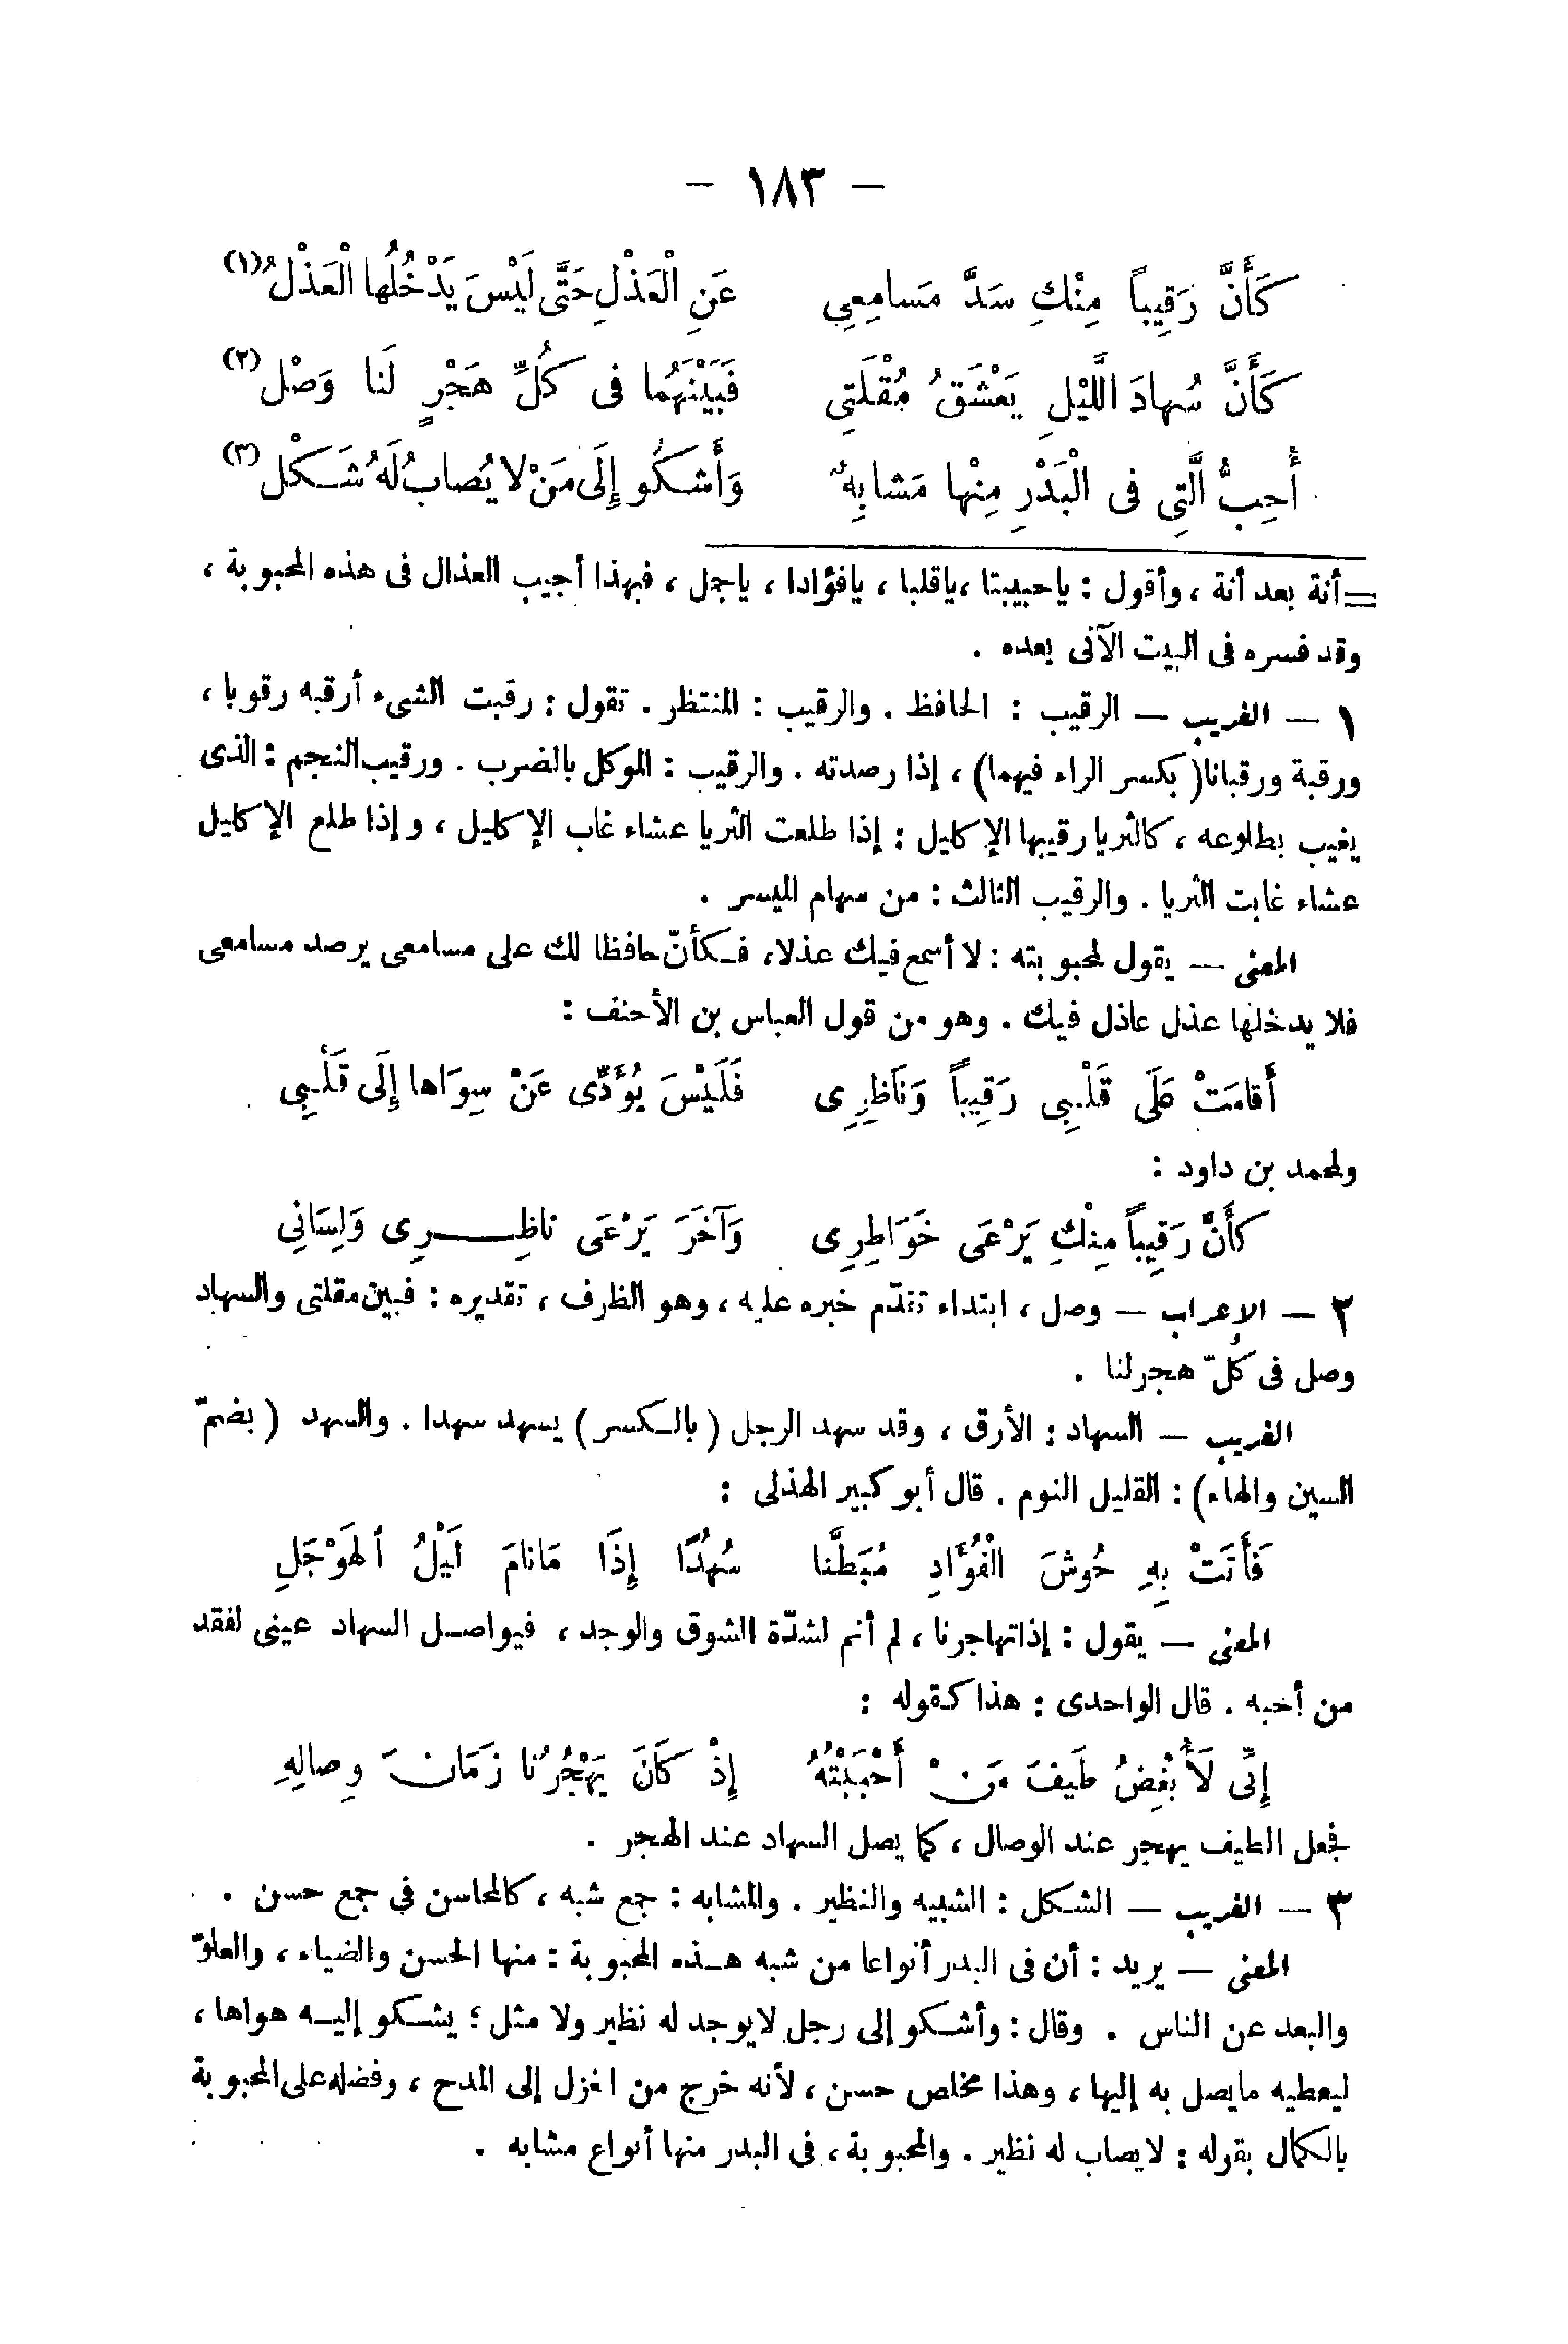 – ١٨٣ –
كَأَنَّ رَقِيباً مِنْكِ سَدَّ مَسامِعِي عَنِ الْعَذْلِ حَتَّى لَيْسَ يَدْخُلُها الْعَذْلُ (١)
كَأَنَّ سُهادَ اللَّيْلِ يَعْشَقُ مُقْلَتِي فَبَيْنَهُما فى كُلِّ هَجْرٍ لَنا وَصْل (٢)
أُحِبُّ الَّتِي فى الْبَدْرِ مِنْها مَشابِهٌ وَأَشكُو إِلَى مَنْ لا يُصابُ لَهُ شَكْل (٣)
=أنة بعد أنة ، وأقول : ياحبيبتا ، ياقلبا ، يافؤادا ، ياجمل ، فبهذا أجيب العذال فى هذه المحبوبة ،
وقد فسره فى البيت الآتى بعده .
١ – الغريب – الرقيب : الحافظ . والرقيب : المنتظر . تقول : رقبت الشىء أرقبه رقوبا ،
ورقبة ورقبانا ( بكسر الراء فيهما ) ، إذا رصدته . والرقيب : الموكل بالضرب . ورقيب النجم : الذى
يغيب بطلوعه ، كالثريا رقيبها الإكليل : إذا طلعت الثريا عشاء غاب الإكليل ، وإذا طلع الإكليل
عشاء غابت الثريا . والرقيب الثالث : من سهام الميسر .
المعنى – يقول لمحبوبته : لا أسمع فيك عذلا ، فكأنّ حافظا لك على مسامعى يرصد مسامعى
فلا يدخلها عذل عاذل فيك . وهو من قول العباس بن الأحنف :
أَقامَتْ عَلَى قَلْبِى رَقِيباً وَنَاظِرِى فَلَيْسَ يُؤَدِّى عَنْ سِوَاها إِلَى قَلْبِى
ولمحمد بن داود :
كأَنَّ رَقِيباً مِنْكِ يَرْعَى خَوَاطِرِى وَآخَرَ يَرْعَى ناظِرِى وَلِسَانِي
٢ – الإعراب – وصل ، ابتداء تقدّم خبره عليه ، وهو الظرف ، تقديره : فبين مقلتى والسهاد
وصل فى كُلّ هجر لنا .
الغريب – السهاد : الأرق ، وقد سهد الرجل ( بالكسر ) يسهد سهدا . والسهد ( بضمّ
السين والهاء ) : القليل النوم . قال أبو كبير الهذلى :
فَأَتَتْ بِهِ حُوشَ الْفُؤَادِ مُبَطَّنا سُهُدًا إِذَا مَانامَ لَيْلُ الهَوْجَلِ
المعنى – يقول : إذا تهاجرنا ، لم أنم لشدّة الشوق والوجد ، فيواصل السهاد عينى لفقد
من أحبه . قال الواحدى : هذا كقوله :
إِنِّى لَأُبْغِضُ طَيفَ مَنْ أَحْبَبْتُهُ إِذْ كَانَ يَهْجُرُنا زَمَانَ وِصالِهِ
فجعل الطيف يهجر عند الوصال ، كما يصل السهاد عند الهجر .
٣ – الغريب – الشكل : الشبيه والنظير . والمشابه : جمع شبه ، كالمحاسن في جمع حسن .
المعنى – يريد : أن فى البدر أنواعا من شبه هذه المحبوبة : منها الحسن والضياء ، والعلوّ
والبعد عن الناس . وقال : وأشكو إلى رجل لايوجد له نظير ولا مثل ؛ يشكو إليه هواها ،
ليعطيه مايصل به إليها ، وهذا مخلص حسن ، لأنه خرج من الغزل إلى المدح ، وفضله على المحبوبة
بالكمال بقوله : لايصاب له نظير . والمحبوبة ، فى البدر منها أنواع مشابه .